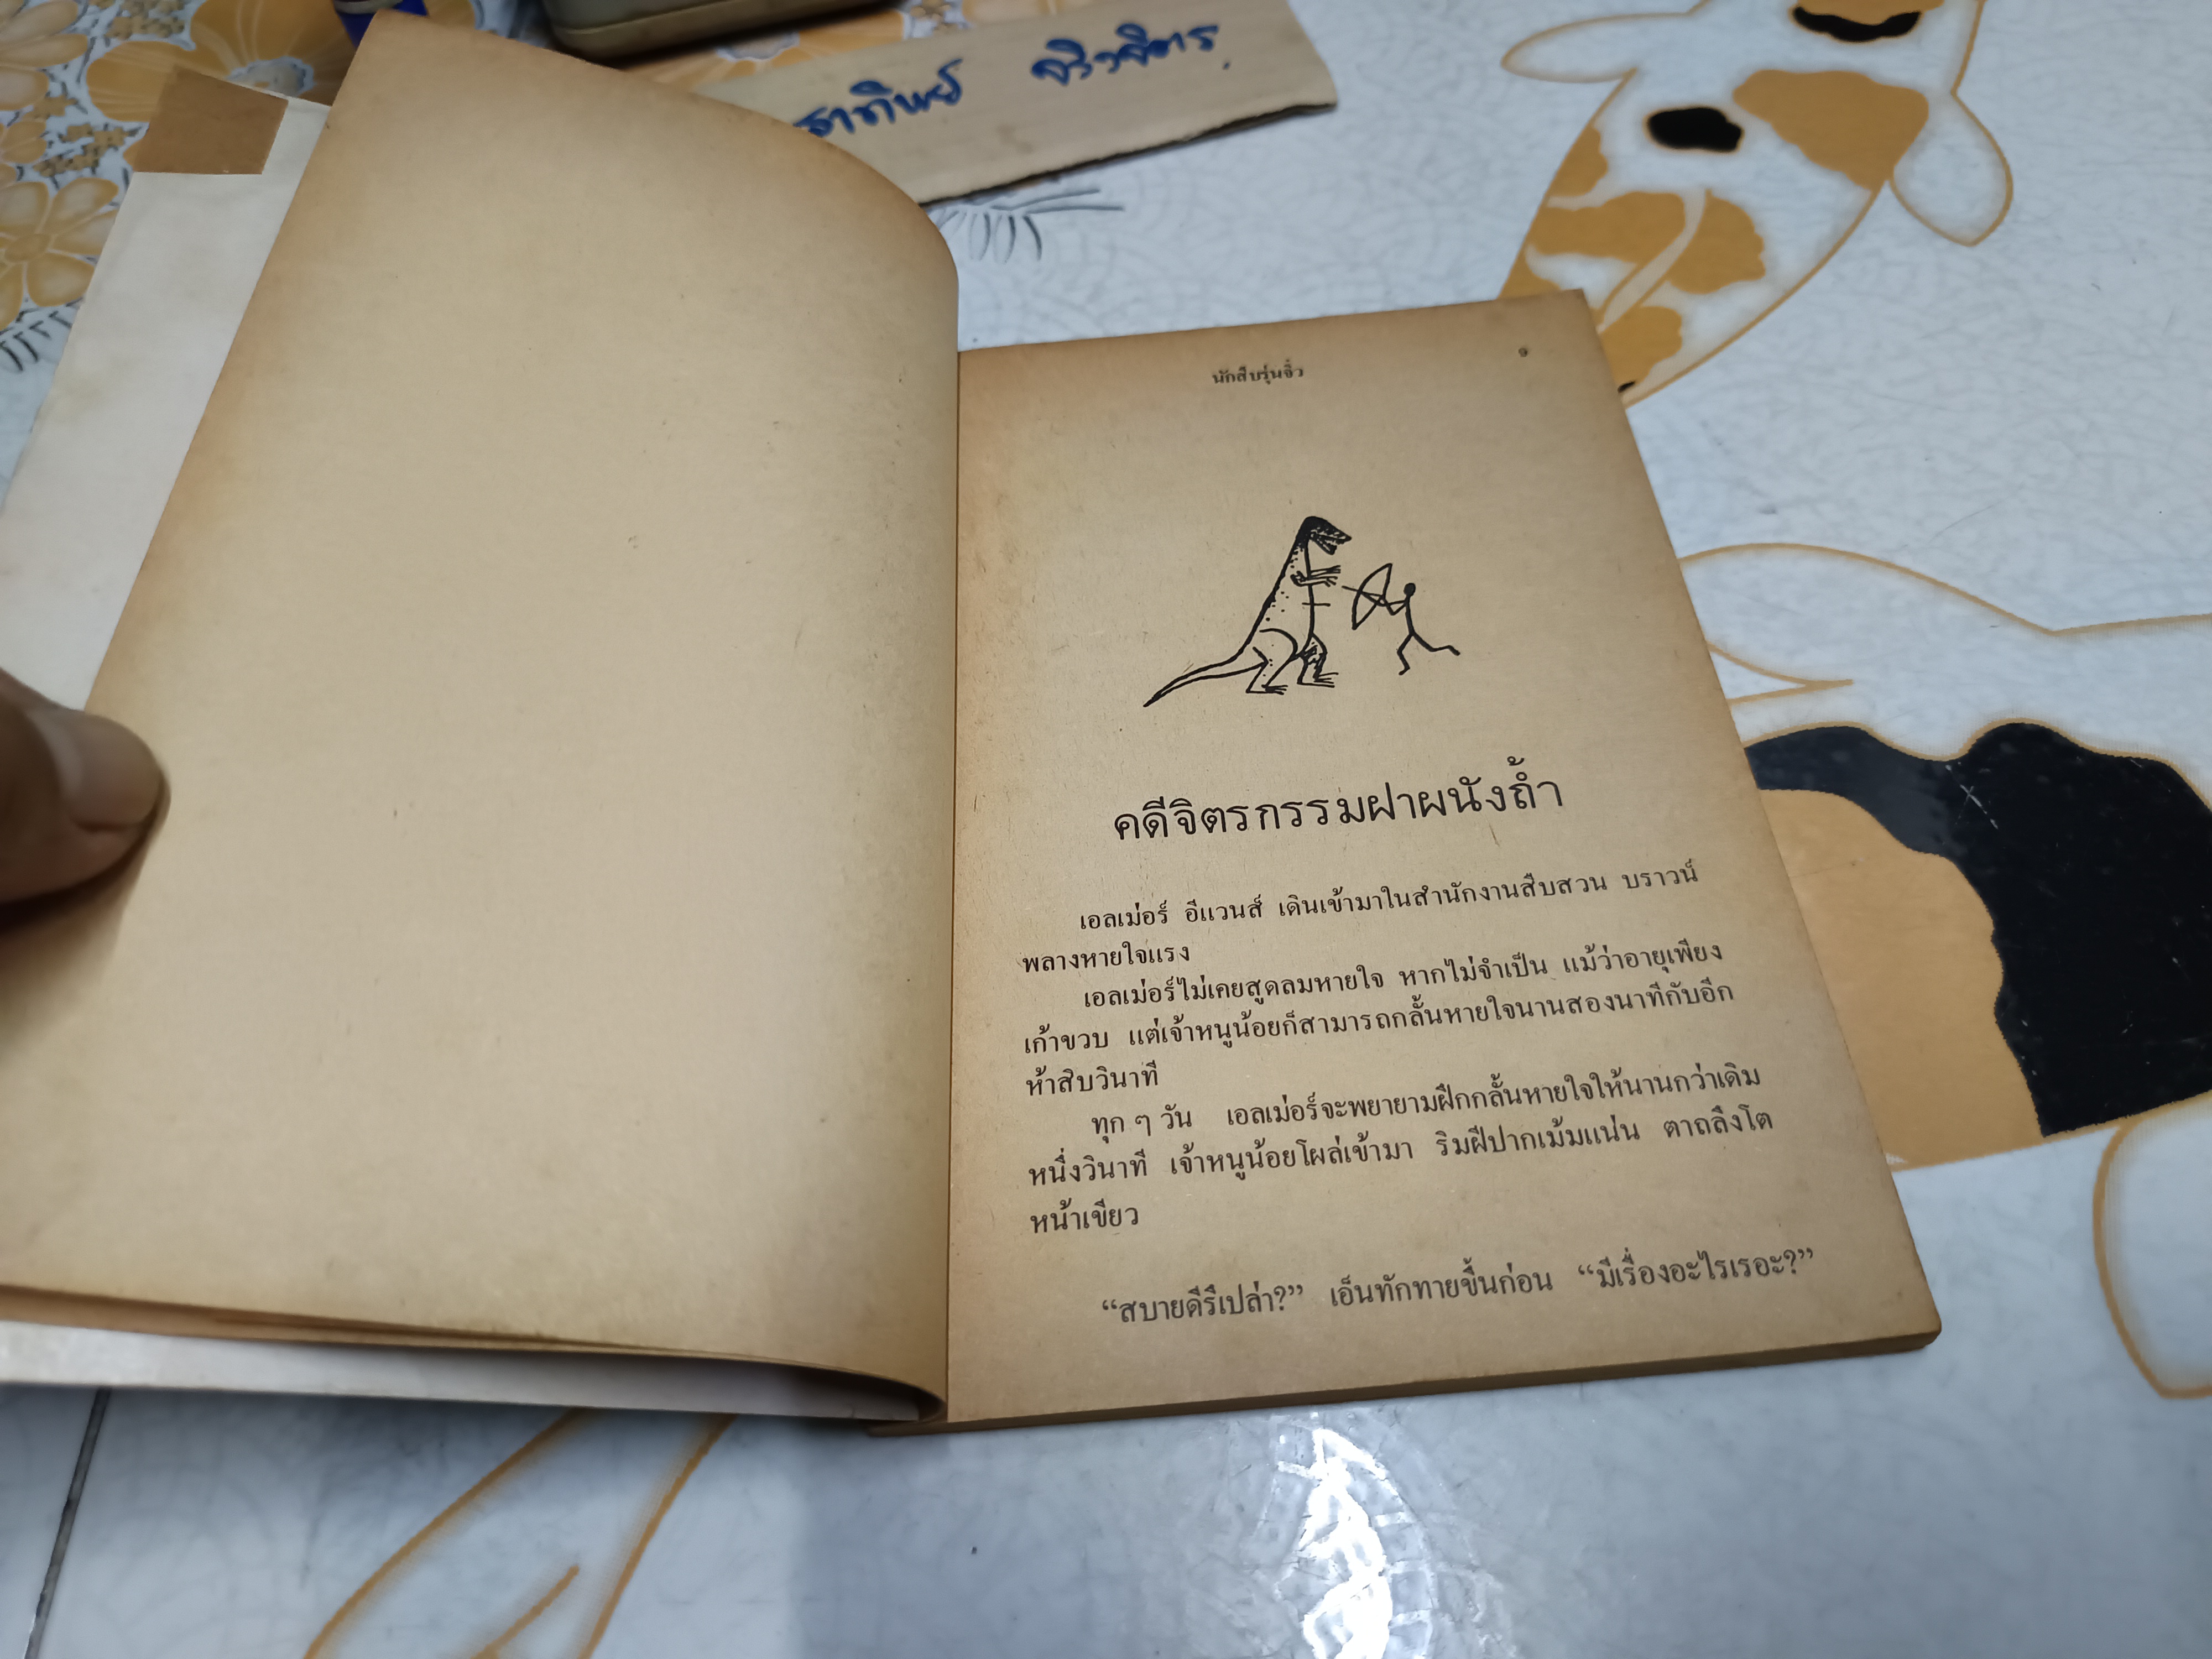 ราทิพย์ จริงจิตร
นักสืบรุ่นจิ๋ว ๑
คดีจิตรกรรมฝาผนังถ้ำ
เอลเม่อร์ อีแวนส์ เดินเข้ามาในสำนักงานสืบสวน บราวน์
พลางหายใจแรง
เอลเม่อร์ไม่เคยสูดลมหายใจ หากไม่จำเป็น แม้ว่าอายุเพียง
เก้าขวบ แต่เจ้าหนูน้อยก็สามารถกลั้นหายใจนานสองนาทีกับอีก
ห้าสิบวินาที
ทุก ๆ วัน เอลเม่อร์จะพยายามฝึกกลั้นหายใจให้นานกว่าเดิม
หนึ่งวินาที เจ้าหนูน้อยโผล่เข้ามา ริมฝีปากเม้มแน่น ตาถลึงโต
หน้าเขียว
“สบายดีรึเปล่า?” เอ็นทักทายขึ้นก่อน “มีเรื่องอะไรเรอะ?”